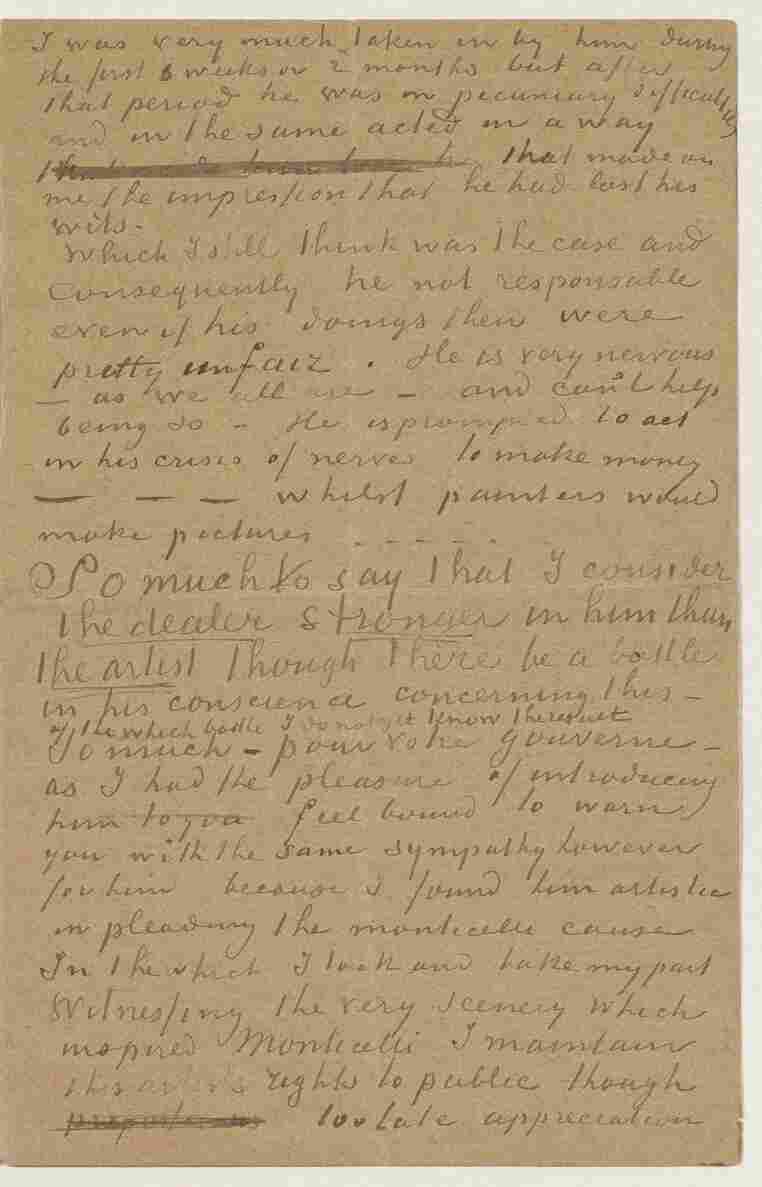 I was very much taken in by him during
the first 6 weeks or 2 months but after
that period he was in pecuniary difficulties
and in the same acted in a way
that made on
me the impression that he had lost his
wits.
Which I still think was the case and
consequently he not responsable
even if his doings then were
pretty unfair. He is very nervous
— as we all are — and can't help
being so — He is prompted to act
in his crisis of nerves to make money
— — — whilst painters would
make pictures . . . . . .
So much to say that I consider
the dealer stronger in him than
the artist though there be a battle
in his conscience concerning this —
of the which battle I do not yet know the result
So much — pour votre gouverne —
as I had the pleasure of introducing
him to you feel bound to warn
you with the same sympathy however
for him because I found him artistic
in pleading the monticelli cause
In the which I took and take my part
Witnessing the very scenery which
inspired Monticelli I maintain
this artist's rights to public though
too late appreciation